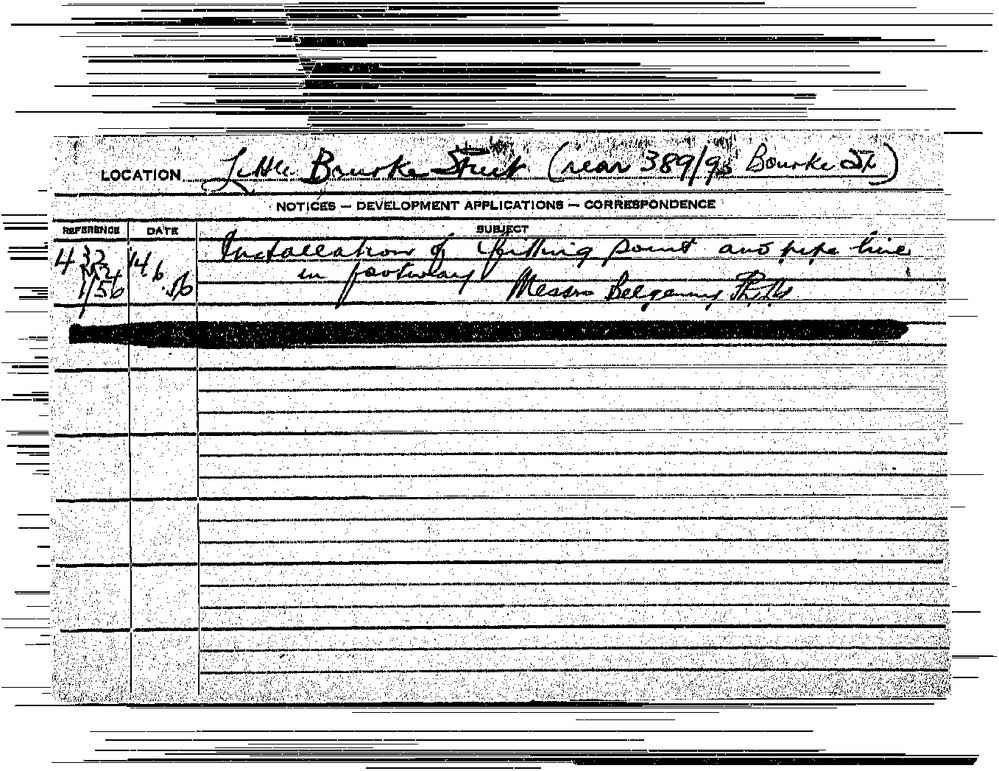 LOCATION Little Bourke Street (rear 389/93 Bourke St.)
NOTICES — DEVELOPMENT APPLICATIONS — CORRESPONDENCE
REFERENCE DATE SUBJECT
432 14.6.56 Installation of filling point and pipe line
1/56 in footway Messrs